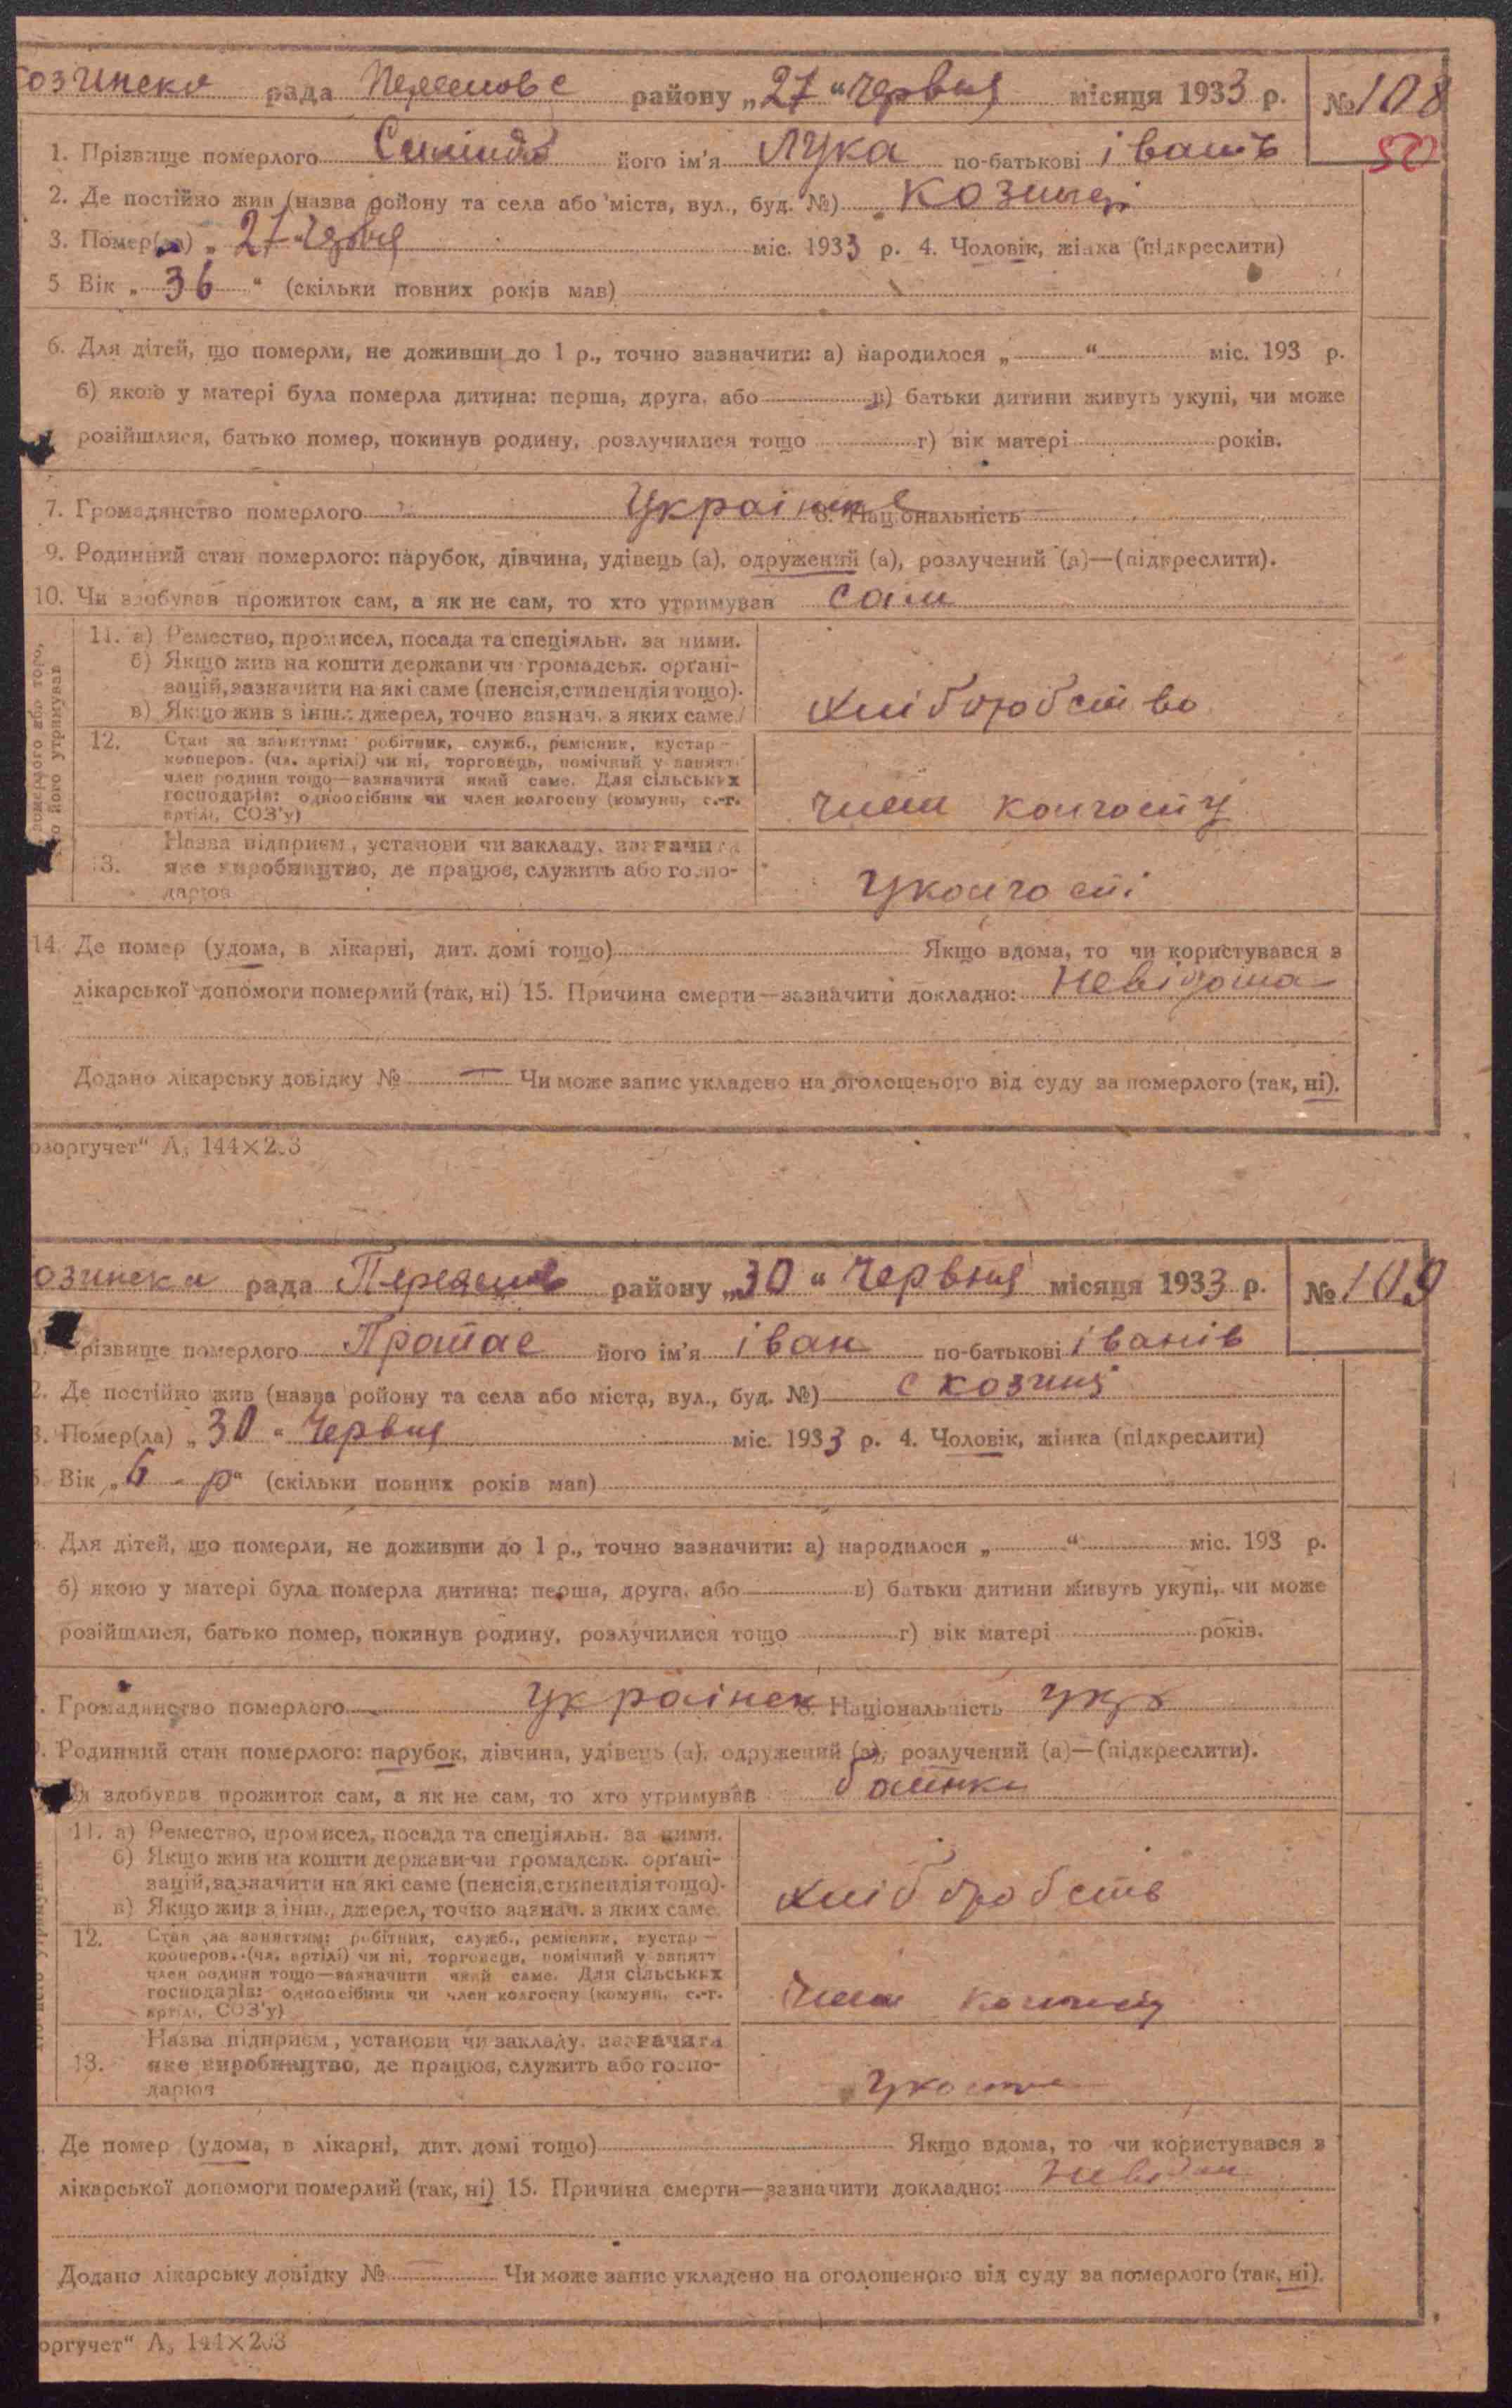 озинска рада района „27“ Червня місяця 1933 р. № 108
50
1. Прізвище померлого його ім'я Лука по-батькові
2. Де постійно жив (назва ройону та села або міста, вул., буд. №) Козинці
3. Помер(ла) „27“ Червня міс. 1933 р. 4. Чоловік, жінка (підкреслити)
5 Вік „36“ (скільки повних років мав)
6. Для дітей, що померли, не доживши до 1 р., точно зазначити: а) народилося „ “ міс. 193 р.
б) якою у матері була померла дитина: перша, друга, або в) батьки дитини живуть укупі, чи може
розійшлися, батько помер, покинув родину, розлучилися тощо г) вік матері років.
7. Громадянство померлого 8. Національність
9. Родинний стан померлого: парубок, дівчина, удівець (а), одружений (а), розлучений (а)—(підкреслити).
10. Чи здобував прожиток сам, а як не сам, то хто утримував сам
померлого або того,
його утримував
11. а) Ремество, промисел, посада та спеціяльн. за ними.
б) Якщо жив на кошти держави чи громадськ. органі-
зацій, зазначити на які саме (пенсія, стипендія тощо).
в) Якщо жив з інш. джерел, точно зазнач. з яких саме.
хліборобство
12. Стан за заняттям: робітник, служб., ремісник, кустар—
кооперов. (чл. артілі) чи ні, торговець, помічний у занятт
член родини тощо—зазначити який саме. Для сільських
господарів: одноосібник чи член колгоспу (комуни, с.-г.
артілі, СОЗ'у)
член колгоспу
Назва підприєм, установи чи закладу, зазначити
13. яке виробництво, де працює, служить або госпо-
дарює
14. Де помер (удома, в лікарні, дит. домі тощо) Якщо вдома, то чи користувався з
лікарської допомоги померлий (так, ні) 15. Причина смерти—зазначити докладно: Невідома
Додано лікарську довідку № — Чи може запис укладено на оголошеного від суду за померлого (так, ні).
оргучет“ А₅ 144×203
озинска рада району „30“ Червня місяця 1933 р. № 109
1. Прізвище померлого Протас його ім'я іван по-батькові іванів
2. Де постійно жив (назва ройону та села або міста, вул., буд. №) с козинці
3. Помер(ла) „30“ Червня міс. 1933 р. 4. Чоловік, жінка (підкреслити)
5. Вік „6 р“ (скільки повних років мав)
6. Для дітей, що померли, не доживши до 1 р., точно зазначити: а) народилося „ “ міс. 193 р.
б) якою у матері була померла дитина: перша, друга, або в) батьки дитини живуть укупі, чи може
розійшлися, батько помер, покинув родину, розлучилися тощо г) вік матері років.
Громадянство померлого українек 8. Національність укр
Родинний стан померлого: парубок, дівчина, удівець (а), одружений (а), розлучений (а)—(підкреслити).
здобував прожиток сам, а як не сам, то хто утримував
11. а) Ремество, промисел, посада та спеціяльн. за ними.
б) Якщо жив на кошти держави чи громадськ. органі-
зацій, зазначити на які саме (пенсія, стипендія тощо).
в) Якщо жив з інш., джерел, точно зазнач. з яких саме.
хліборобств
12. Стан за заняттям: робітник, служб., ремісник, кустар—
кооперов. (чл. артілі) чи ні, торговець, помічний у занятт
член родини тощо—зазначити який саме. Для сільських
господарів: одноосібник чи член колгоспу (комуни, с.-г.
артілі, СОЗ'у)
член
Назва підприєм, установи чи закладу, зазначити
13. яке виробництво, де працює, служить або госпо-
дарює
Де помер (удома, в лікарні, дит. домі тощо) Якщо вдома, то чи користувався з
лікарської допомоги померлий (так, ні) 15. Причина смерти—зазначити докладно:
Додано лікарську довідку № — Чи може запис укладено на оголошеного від суду за померлого (так, ні).
оргучет“ А₅ 144×203